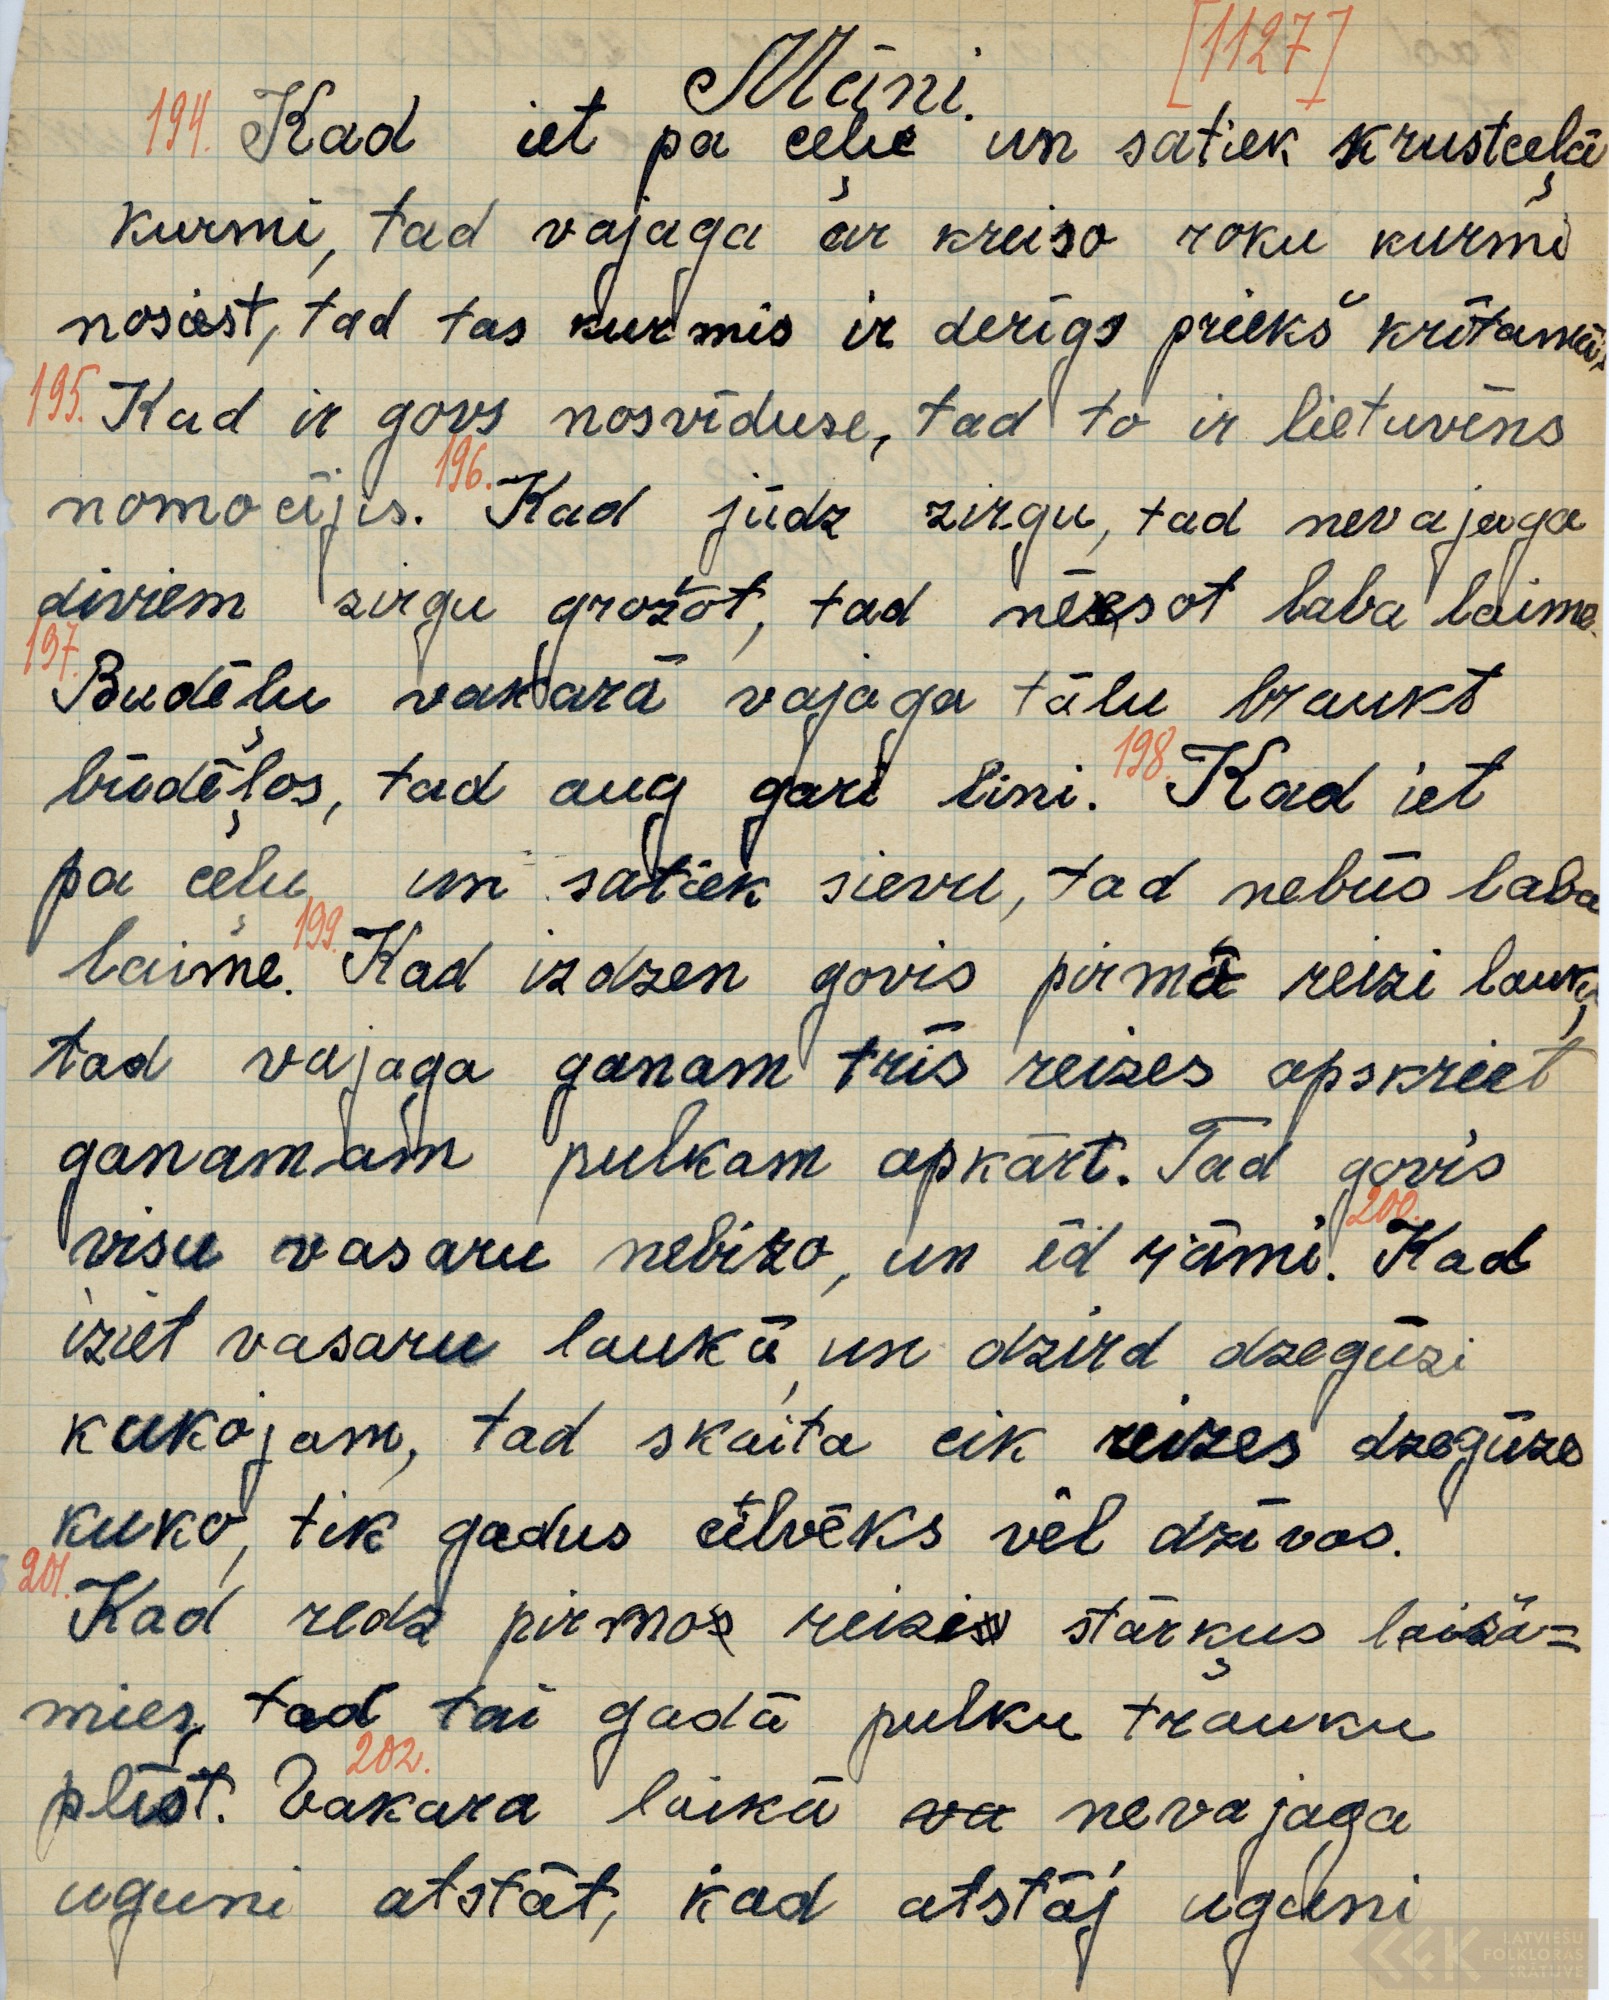 [1127]
Māņi.
194. Kad iet pa ceļu un satiek krustceļā
kurmi, tad vajaga ar kreiso roku kurmi
nosist, tad tas kurmis ir derīgs priekš
195. Kad ir govs nosvīduse, tad to ir lietuvēns
nomocījis. 196. Kad jūdz zirgu, tad nevajaga
diviem zirgu grožot, tad nēesot laba laime.
197. Budēļu vakarā vajaga tālu braukt
būdēļos, tad aug gari lini. 198. Kad iet
pa ceļu un satiek sievu, tad nebūs laba
laime. 199. Kad izdzen govis pirmā reizi laukā,
tad vajaga ganam trīs reizes apskriet
ganamam pulkam apkārt. Tad govis
visu vasaru nebizo, un ēd rāmi. 200. Kad
iziet vasaru laukā, un dzird dzegūzi
kukojam, tad skaita cik reizes dzegūze
kuko, tik gadus cilvēks vēl dzīvos.
201. Kad redz pirmo reizi stārķus laižā=
mies, tad tai gadā pulku trauku
plīst. 202. Vakara laikā va nevajaga
uguni atstāt, kad atstāj uguni
LATVIEŠU
FOLKLORAS
KRĀTUVE